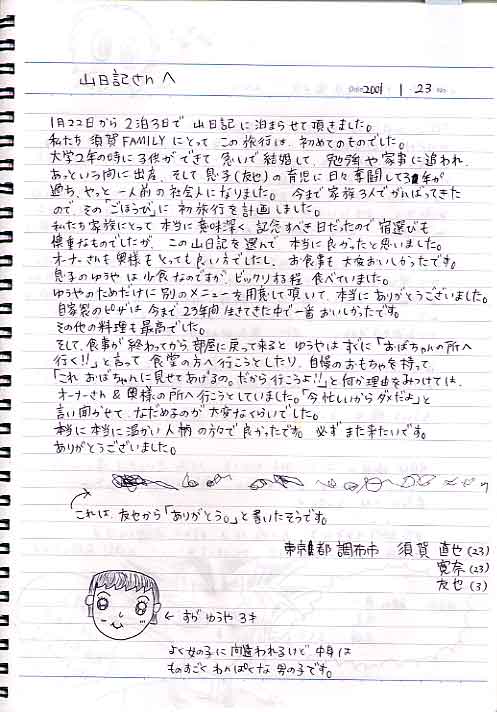 2001 1 23
山日記さんへ
1月22日から 2泊3日で 山日記に泊まらせて頂きました。
私たち 須賀FAMILYにとって この旅行は、初めてのものでした。
大学2年の時に子供ができて 急いで結婚して、勉強や家事に追われ、
あっという間に出産、そして息子(友也)の育児に日々奮闘して3年が
過ち、やっと一人前の社会人になりました。 今まで家族3人でがんばってきた
ので、その「ごほうび」に 初旅行を計画しました。
私たち家族にとって 本当に意味深く、記念すべき日だったので宿選びも
慎重なものでしたが、この山日記を選んで 本当に良かったと思いました。
オーナーさんも奥様もとっても良い方でしたし、お食事も大変おいしかったです。
息子のゆうやは少食なのですが、ビックリする程 食べていました。
ゆうやのためだけに別のメニューを用意して頂いて、本当にありがとうございました。
自家製のピザは今まで23年間生きてきた中で一番おいしかったです。
その他の料理も最高でした。
そして、食事が終わってから部屋に戻って来ると ゆうやはすぐに「おばちゃんの所へ
行く!!」と言って 食堂の方へ行こうとしたり、自慢のおもちゃを持って
「これおばちゃんに見せてあげるの。だから行こうよ!!」と何か理由をみつけては、
オーナーさん & 奥様の所へ行こうとしていました。「今忙しいからダメだよ」と
言い聞かせて、なだめるのが大変なくらいでした。
本当に本当に温かい人柄の方々で良かったです。必ずまた来たいです。
ありがとうございました。
これは、友也から「ありがとう。」と書いたそうです。
東京都 調布市 須賀 直也 (23)
寛奈 (23)
友也 (3)
← すが ゆうや 3才
よく女の子に間違われるけど中身は
ものすごくわんぱくな男の子です。